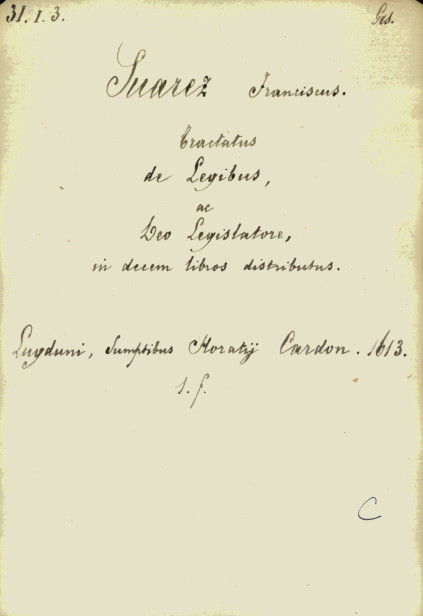 31. 1. 3. Ges.
Suarez Franciscus.
Tractatus
de Legibus,
ac
Deo Legislatore,
in decem libros distributus.
Lugduni, Sumptibus Horatij Cardon. 1613.
1. f.
C